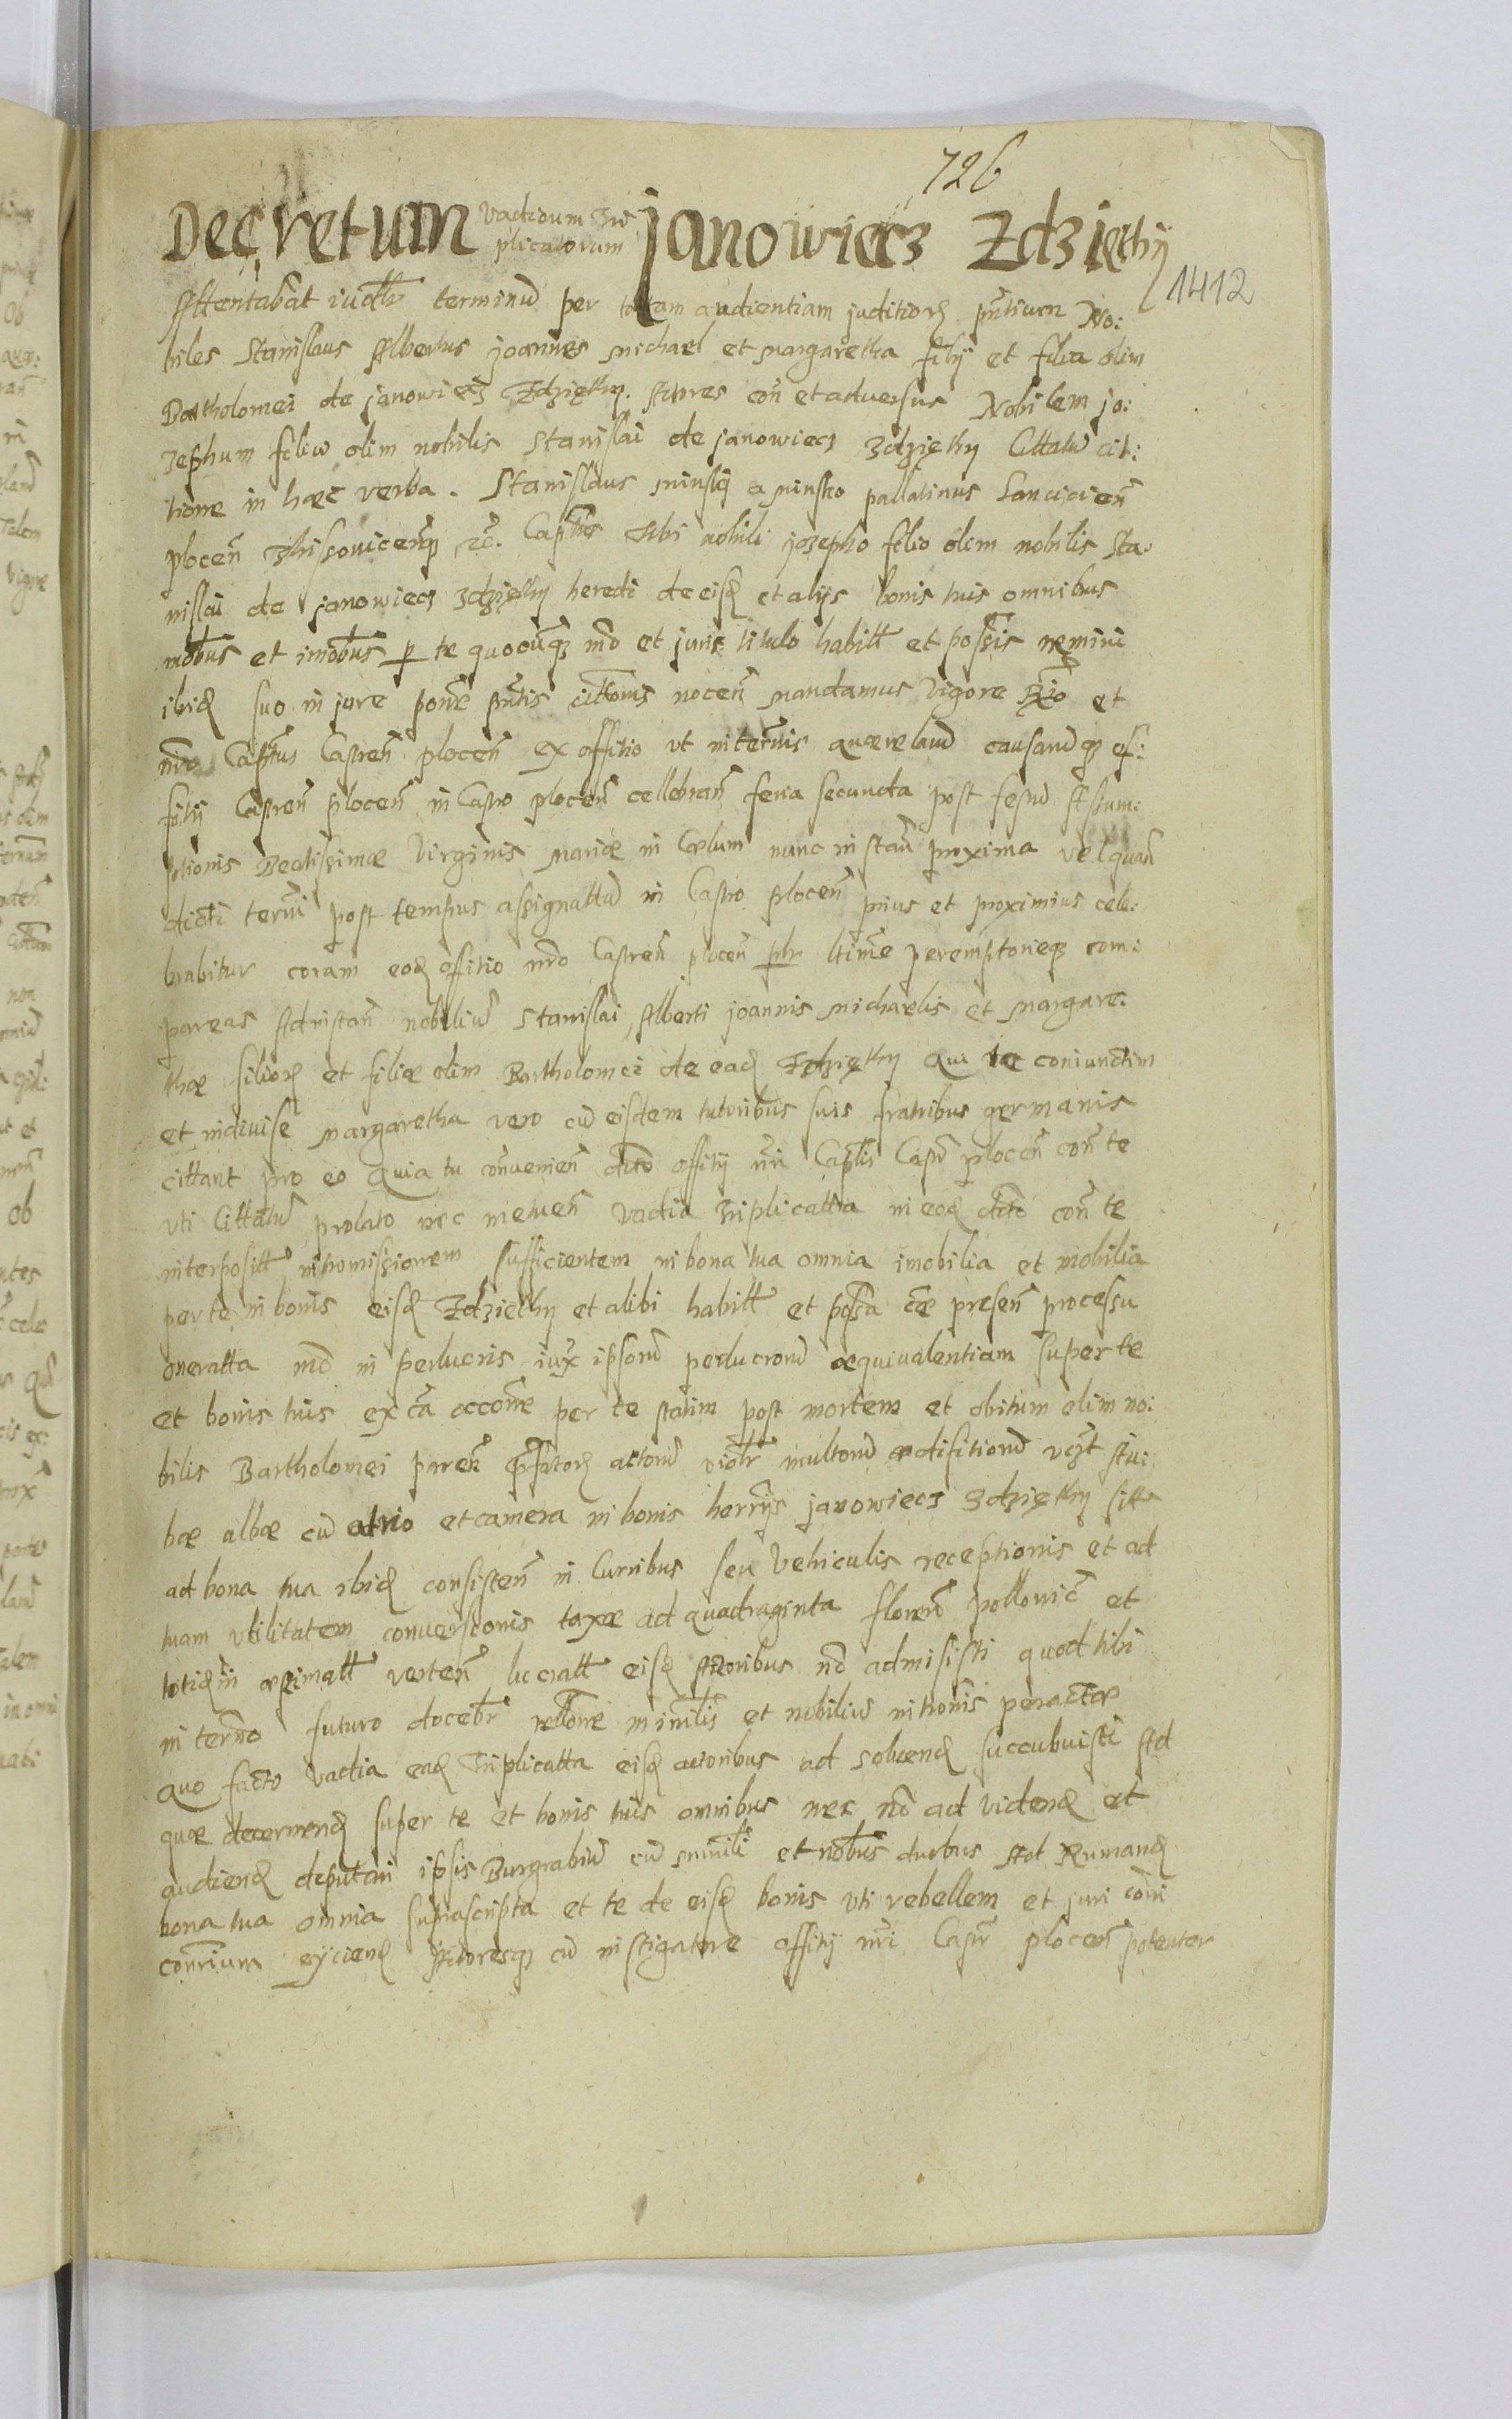 726
Decretum vadioum Tri
plicatorum Janowiecz Zdzięthy
1412
Attentabāt iudr̄ terminū per totam audientiam juditiorȝ pn̄tium No:
biles Stanislaus Albertus joannes Michael et Margaretha filij et filia olim
Bartholomei de janowiecz Zdzięthy. Actores con̄ et adversus Nobilem jo:
zephum filiū olim nobilis Stanislai de janowiecz Zdzięthy Cittatū cit:
tione in hæc verba. Stanislaus Minsky a Minsko pallatinus Lancicien̄
plocen̄ etc. Capt̄us tibi nobili jozepho filio olim nobilis Sta:
nislai de janowiecz Zdzięthy heredi de eisȝ et alijs bonis tuis omnibus
mobus et imobus p te quocūqȝ mō et juris titulo habitt et possis nemini
ibidȝ suo in jure pon̄e pn̄tis citt̄onis nocen̄ mandamus vigore et
nr̄o Capt̄us Castren̄ plocen̄ ex offitio ut in ter̄nis quærelaru causarūqȝ of:
fitij Castren̄ plocen̄ in Castro plocen̄ cellebran̄ feria secunda post festū Assum:
ptionis Beatissimæ Virginis Mariæ in Cœlum nunc instan̄ proxima vel quan̄
dicti ter̄ni post tempus assignattū in Castro plocen̄ prius et proximius cele:
brabitur coram eodȝ offitio nr̄o Castren̄ plocen̄ ltime peremptorieqȝ com:
pareas Ad instan̄ nobiliū Stanislai, Alberti joannis Michaelis et Margare:
thæ filiorȝ et filiæ olim Bartholomei de eadȝ Zdzięthy qui te coniunctim
et indivise Margaretha vero cū eisdem tutoribus suis fratribus germanis
cittant pro eo Quia tu convenien̄ dcto offitij nr̄i Captlis Castr̄ plocen̄ con̄ te
uti Cittatū prolato nec metuen̄ vadia triplicatta in eodȝ dcto con̄ te
interpositt intromissionem sufficientem in bona tua omnia imobilia et mobilia
per te in bonis eisȝ Zdzięthy et alibi habitt et possa præsen̄ processu
oneratta mō in perlucris iux̄ ipsorū perlucrorū æquivalentiam super te
et bonis tuis ex cā occon̄e per te statim post mortem et obitum olim no:
bilis Bartholomei paren̄ præfatorȝ actorū violtr̄ multorū ædifitiorū vȝt stu:
bæ albæ cū atrio et camera in bonis herr̄ijs janowiecz Zdzięthy sitt
ad bona tua ibidȝ consisten̄ in Curribus seu Vehiculis receptionis et ad
tuam utilitatem conversionis taxæ ad quadraginta floren̄ pollonic̄ et
totidȝm æstimatt verten̄ lucratt eisȝ Actoribus nō admisisti quod tibi
in ter̄no futuro docebr̄ rellon̄e ministlis et nobiliū intronis peractæ
quo facto vadia eadȝ Triplicatta eisȝ actoribus ad solvendȝ succubuisti Ad
quæ decernendȝ super te et bonis tuis omnibus nec nō ad videndȝ et
audiendȝ deputari ipsis Burgrabiū cū ministli et nobus duobus Ad Rumandȝ
bona tua omnia suprascripta et te de eisȝ bonis uti rebellem et juri com̄i
contr̄ium eÿciendȝ Actoresqȝ cū instigatore offitij nr̄i Castr̄ plocen̄ potenter